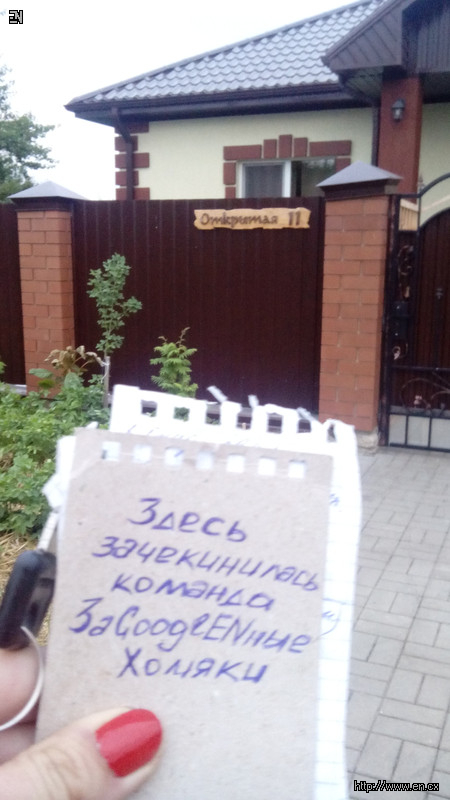 EN
Открытая 11
Здесь
зачекинилась
команда
ЗаGooglENные
Хомяки
http://www.en.cx